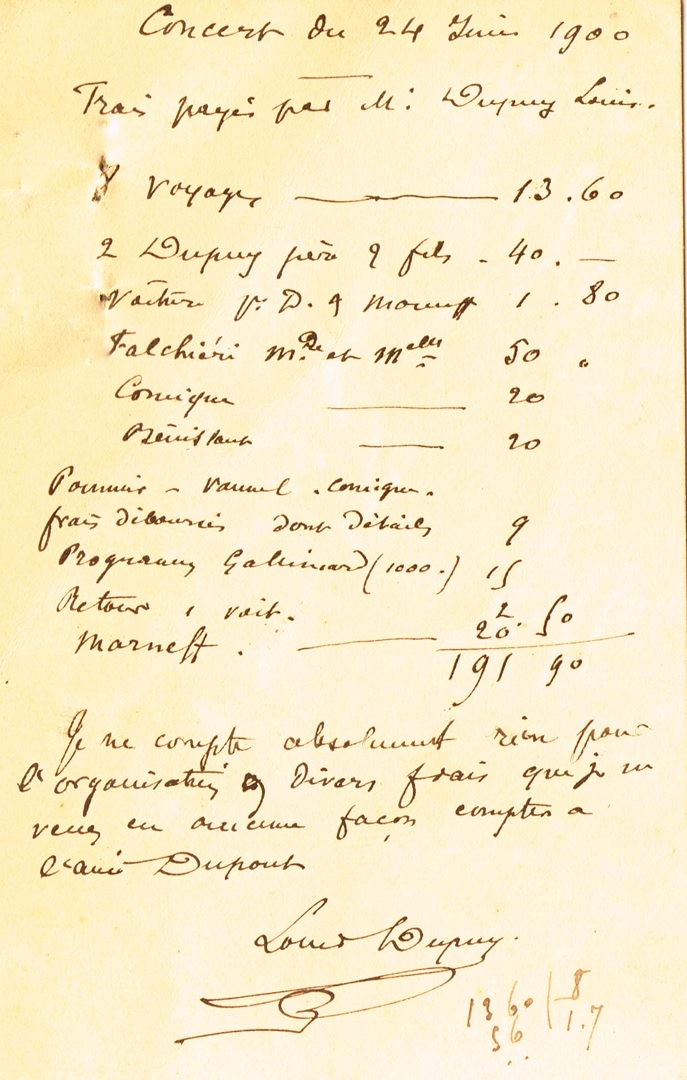 Concert du 24 Juin 1900
Frais payés par Mr Dupuy Louis.
8 Voyages 13.60
2 Dupuy père & fils - 40. —
Voiture pr D. & Morneff 1 . 80
Falchiéri Mde et Melle 50 "
Comique 20
Bénistant 20
Pommier - Vaunel - Comique.
frais déboursés dont détails 9
Programmes Gallimard (1000.) 15
Retour 1 voit. 2 50
Morneff. 20
191 90
Je ne compte absolument rien pour
l'organisation & divers frais que je ne
veux en aucune façon compter a
l'ami Dupont
Louis Dupuy.
13 60 8
56 1.7